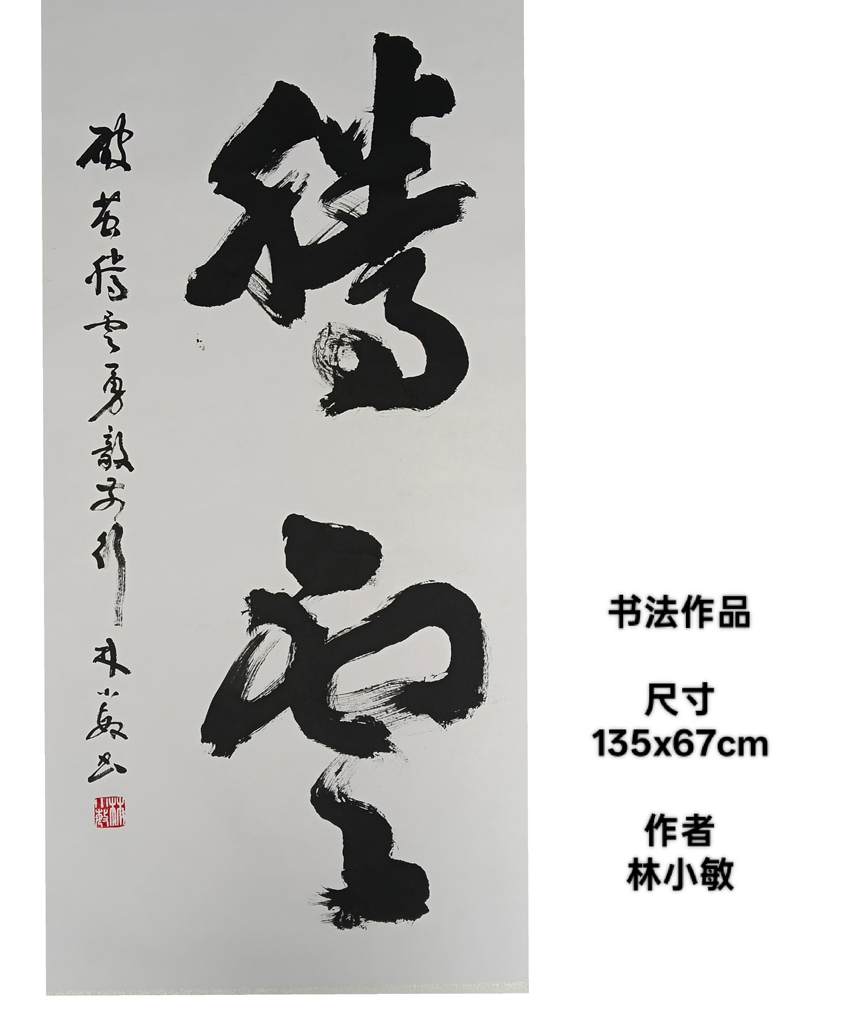 腾云
破茧腾云勇敢前行
林小敏书
林小敏
书法作品
尺寸
135x67cm
作者
林小敏